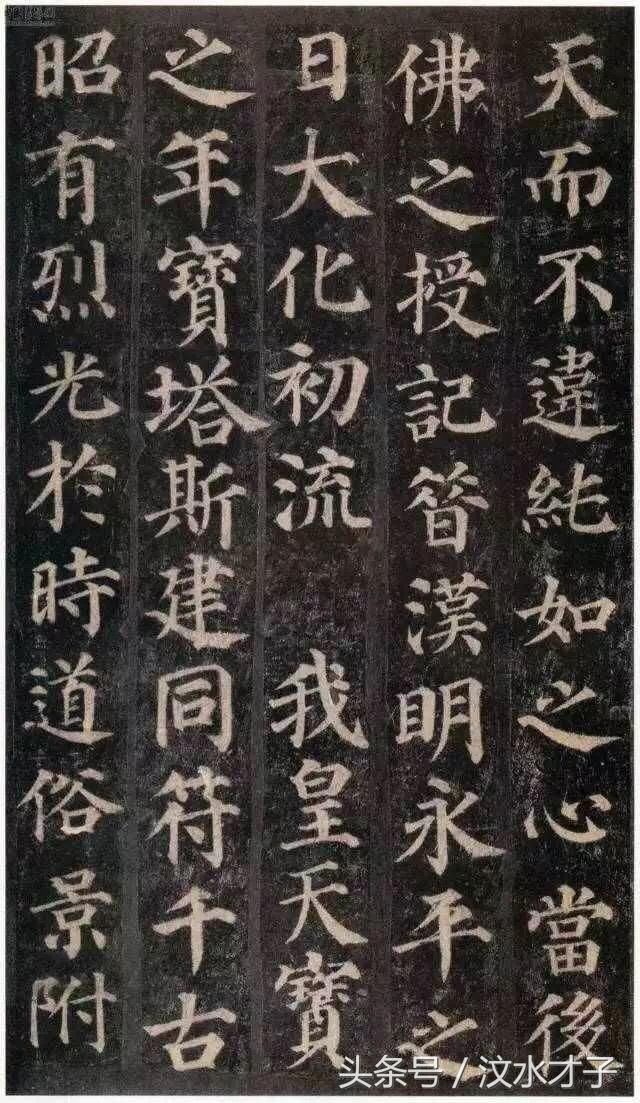 天而不違純如之心當後
佛之授記昔漢明永平之
日大化初流 我皇天寶
之年寶塔斯建同符千古
昭有烈光於時道俗景附
头条号 / 汶水才子